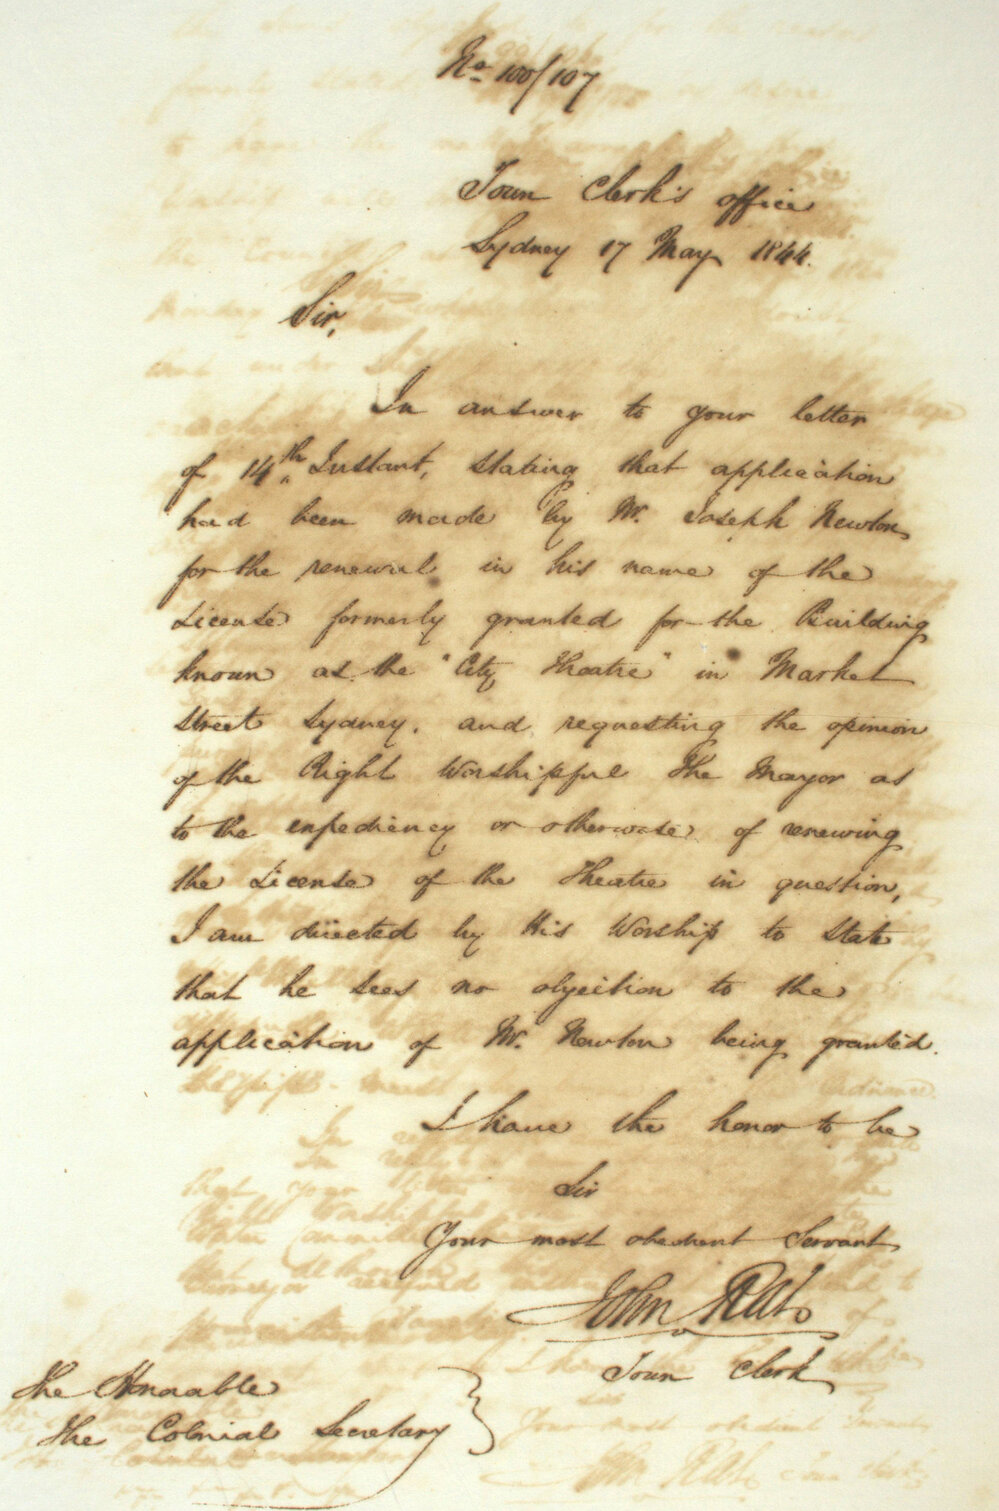 No 100/107
Town Clerk's office
Sydney 17 May 1844.
Sir,
In answer to your letter
of 14th Instant, stating that application
had been made by Mr. Joseph Newton
for the renewal in his name of the
License formerly granted for the Building
known as the "City Theatre" in Market
Street Sydney, and requesting the opinion
of the Right Worshipful The Mayor as
to the expediency or otherwise of renewing
the License of the Theatre in question,
I am directed by His Worship to State
that he sees no objection to the
application of Mr. Newton being granted.
I have the honor to be
Sir
Your most obedient Servant
John Rae
Town Clerk
The Honorable
The Colonial Secretary